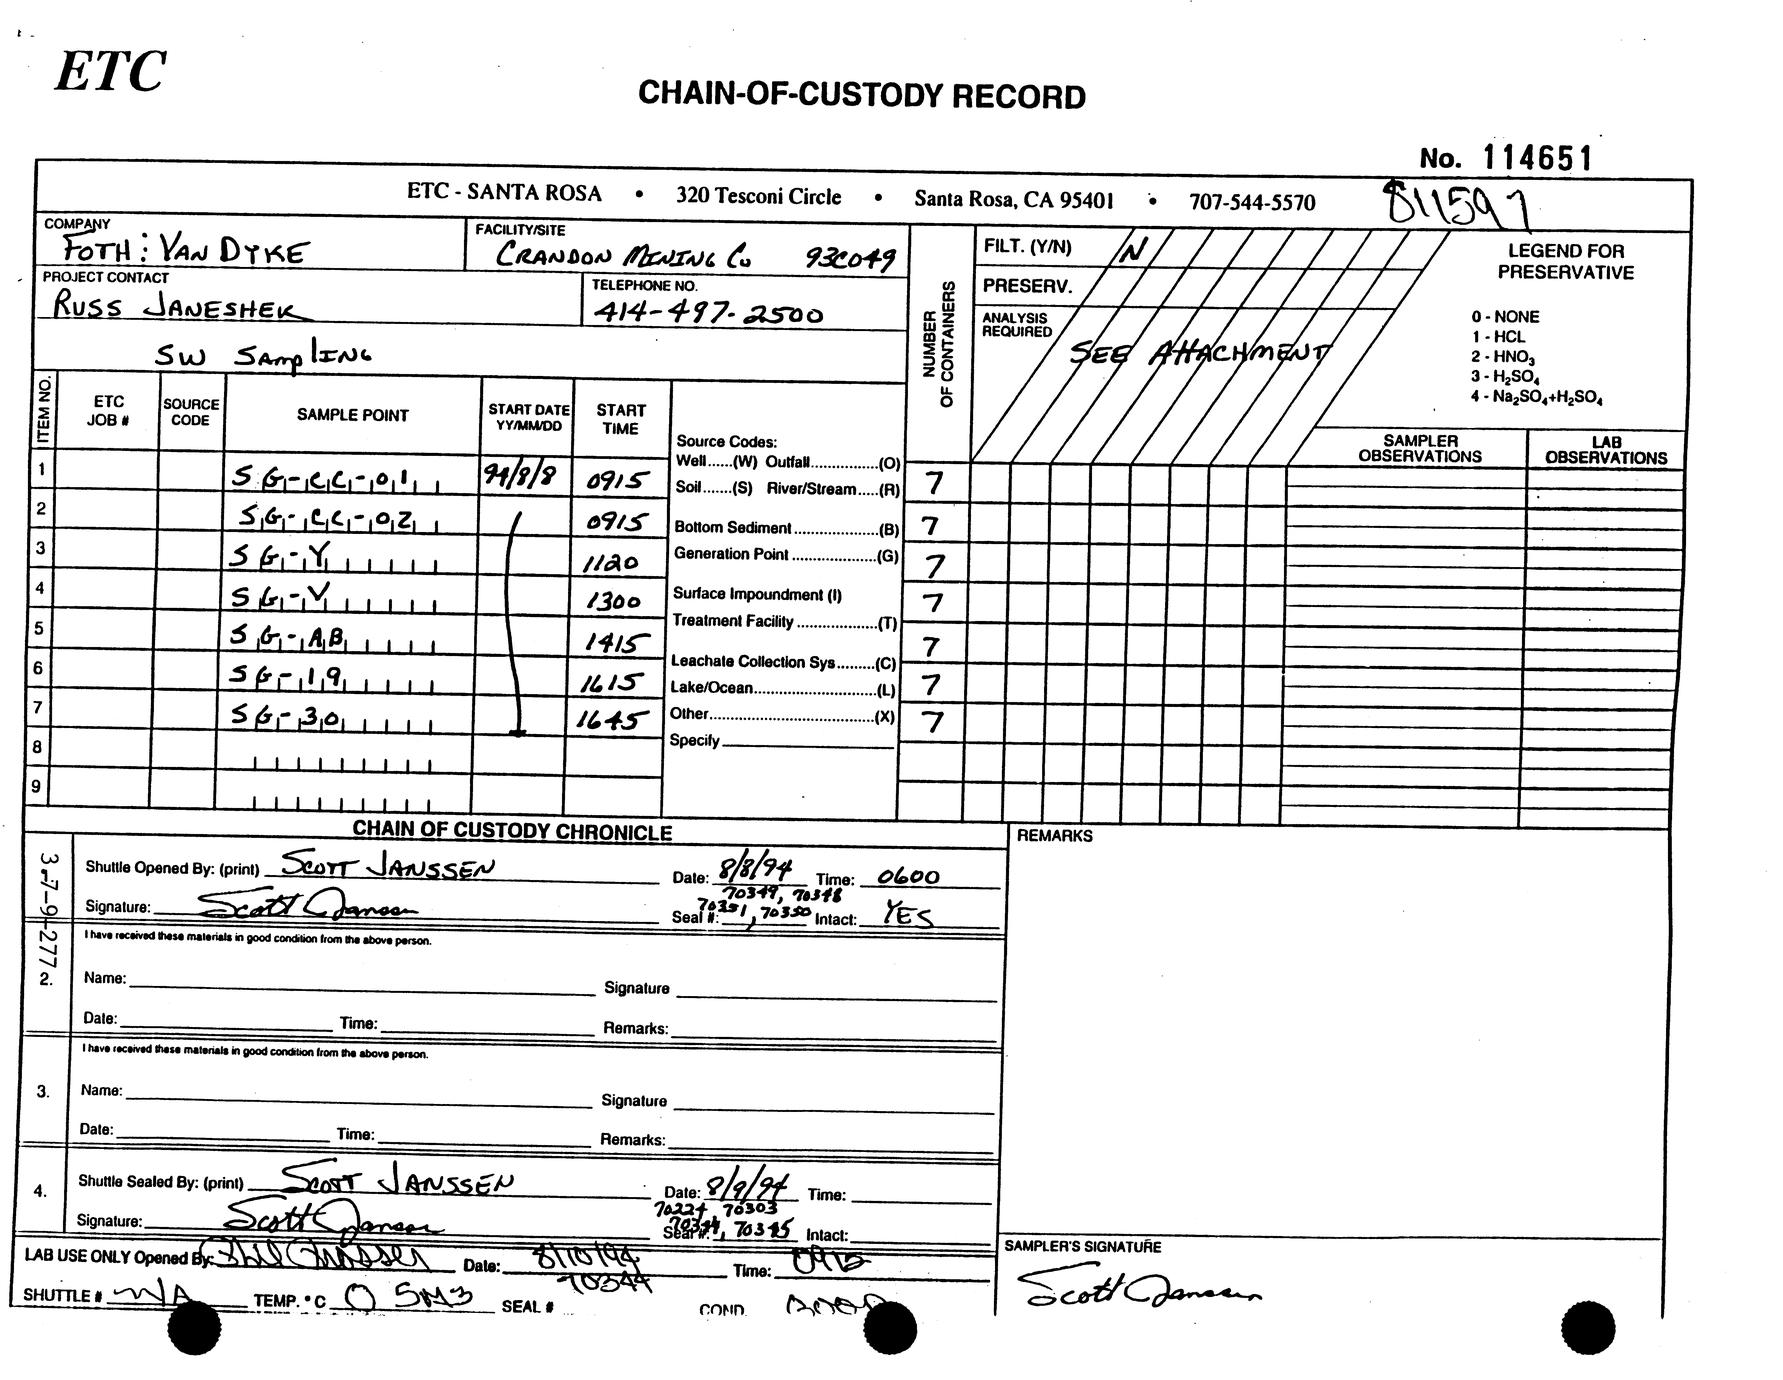 ETC
CHAIN-OF-CUSTODY RECORD
No. 114651
ETC - SANTA ROSA • 320 Tesconi Circle • Santa Rosa, CA 95401 • 707-544-5570 811597
COMPANY
FOTH : VAN DYKE
FACILITY/SITE
CRANDON MINING Co 93C049
PROJECT CONTACT
RUSS JANESHEK
TELEPHONE NO.
414-497-2500
SW SAMPLING
NUMBER OF CONTAINERS
FILT. (Y/N) N
PRESERV.
ANALYSIS REQUIRED
SEE ATTACHMENT
LEGEND FOR
PRESERVATIVE
0 - NONE
1 - HCL
2 - HNO3
3 - H2SO4
4 - Na2SO4+H2SO4
ITEM NO. ETC JOB # SOURCE CODE SAMPLE POINT START DATE YY/MM/DD START TIME
SAMPLER OBSERVATIONS LAB OBSERVATIONS
1 SG-CC-01 94/8/8 0915 7
2 SG-CC-02 0915 7
3 SG-Y 1120 7
4 SG-V 1300 7
5 SG-AB 1415 7
6 SG-19 1615 7
7 SG-30 1645 7
8
9
Source Codes:
Well......(W) Outfall...............(O)
Soil.......(S) River/Stream.....(R)
Bottom Sediment...................(B)
Generation Point...................(G)
Surface Impoundment (I)
Treatment Facility..................(T)
Leachate Collection Sys.........(C)
Lake/Ocean...........................(L)
Other.....................................(X)
Specify
CHAIN OF CUSTODY CHRONICLE
REMARKS
3-7-9-277
Shuttle Opened By: (print) SCOTT JANSSEN Date: 8/8/94 Time: 0600
70349, 70348
Signature: Scott Janssen Seal #: 70351, 70350 Intact: YES
I have received these materials in good condition from the above person.
2. Name: Signature
Date: Time: Remarks:
I have received these materials in good condition from the above person.
3. Name: Signature
Date: Time: Remarks:
4. Shuttle Sealed By: (print) SCOTT JANSSEN Date: 8/9/94 Time:
70224 70303
Signature: Scott Janssen Seal #: 70345 Intact:
LAB USE ONLY Opened By: Date: 8/10/94 Time: 0915
SHUTTLE # N/A TEMP. °C 0 SEAL # 70344 COND. GOOD
SAMPLER'S SIGNATURE
Scott Janssen